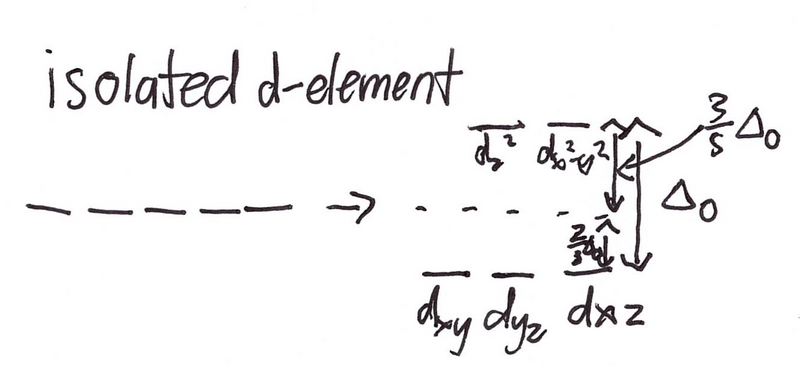 isolated d-element
d_z² d_x²-y² 3/5 Δ₀
→ Δ₀
2/3 Δ₀
dxy dyz dxz